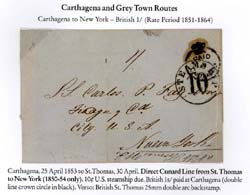 Carthagena and Grey Town Routes
Carthagena to New York - British 1/ (Rate Period 1851-1864)
PAID
STEAMSHIP
10
1/
St Carlos
City
New York
Carthagena, 25 April 1853 to St.Thomas, 30 April. Direct Cunard Line from St. Thomas
to New York (1850-54 only). 10¢ U.S. steamship due. British 1s/ paid at Carthagena (double
line crown circle in black). Verso: British St. Thomas 25mm double arc backstamp.